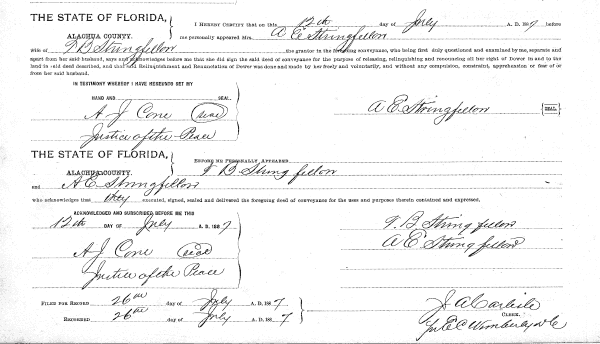 THE STATE OF FLORIDA,
I HEREBY CERTIFY that on this 12th day of July A. D. 1887 before
ALACHUA COUNTY. me personally appeared Mrs. A E Stringfellow
wife of T B Stringfellow the grantor in the foregoing conveyance, who being first duly questioned and examined by me, separate and
apart from her said husband, says and acknowledges before me that she did sign the said deed of conveyance for the purpose of releasing, relinquishing and renouncing all her right of Dower in and to the
land in said deed described, and that said Relinquishment and Renunciation of Dower was done and made by her freely and voluntarily, and without any compulsion, constraint, apprehension or fear of or
from her said husband.
IN TESTIMONY WHEREOF I HAVE HEREUNTO SET MY
HAND AND SEAL.
A J Cone (Seal) A E Stringfellow (SEAL)
Justice of the Peace
THE STATE OF FLORIDA,
ALACHUA COUNTY. BEFORE ME PERSONALLY APPEARED
T B Stringfellow
and A E Stringfellow
who acknowledges that they executed, signed, sealed and delivered the foregoing deed of conveyance for the uses and purposes therein contained and expressed.
ACKNOWLEDGED AND SUBSCRIBED BEFORE ME THIS
12th DAY OF July A. D. 1887 T. B Stringfellow
A E Stringfellow
A J Cone (Seal)
Justice of the Peace
FILED FOR RECORD 26th day of July A. D. 1887 J A Carlisle
CLERK.
RECORDED 26th day of July A. D. 1887 Wimberly D C